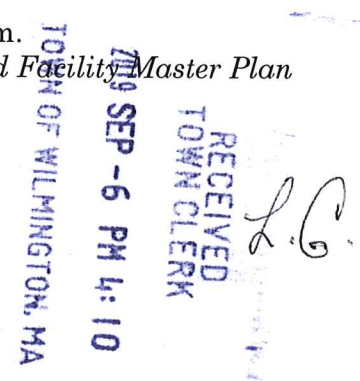 m.
d Facility Master Plan
RECEIVED
TOWN CLERK
2019 SEP -6 PM 4:10
TOWN OF WILMINGTON, MA
L.C.